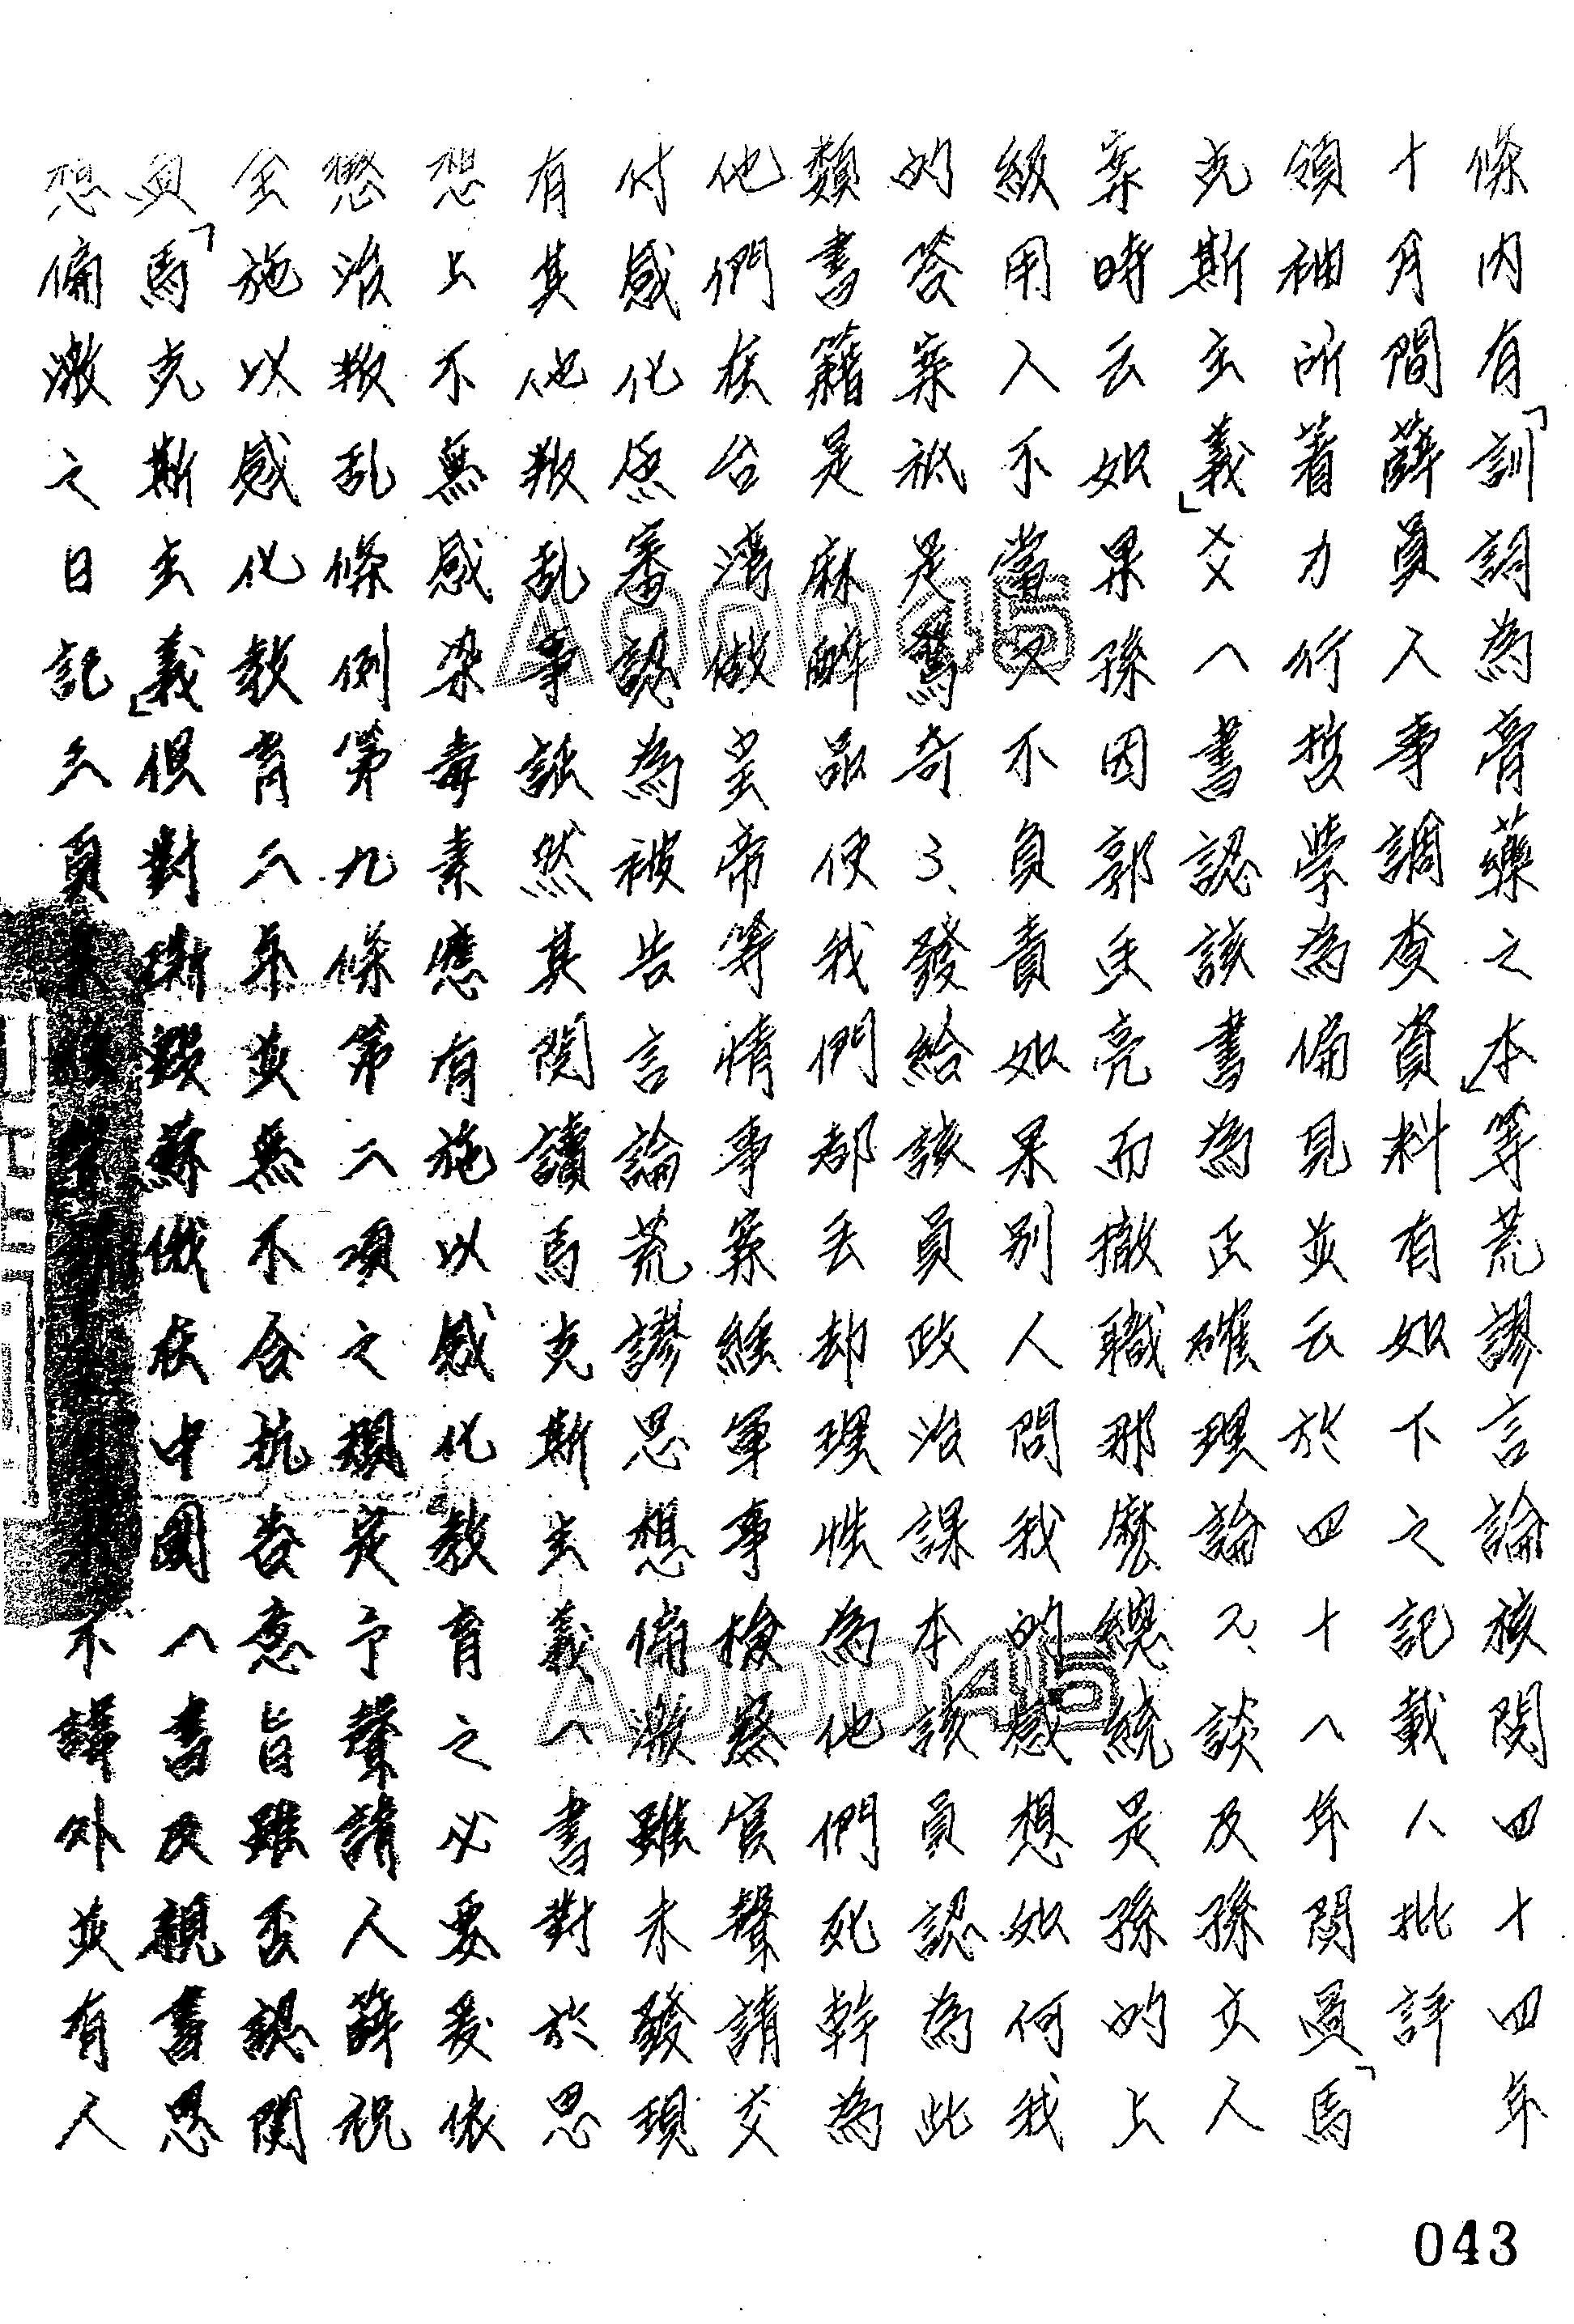 條內有「訓詞為膏藥之」本等荒謬言論核閱四十四年
十月間薛員人事調查資料有如下之記載人批評
領袖所著力行哲學為偏見並云於四十一年閱過「馬
克斯主義」一書認該書為正確理論2、談及孫文人
案時云如果孫因郭廷亮而撤職那麼總統是孫的上
級用人不當又不負責如果別人問我的感想如何我
的答案祇是驚奇3、發給該員政治課本該員認為此
類書籍是麻醉品使我們都丟却理性為他們死幹為
他們在台灣做皇帝等情事案經軍事檢察官聲請交
付感化原審認為被告言論荒謬思想偏激雖未發現
有其他叛亂事証然其閱讀馬克斯主義一書對於思
想上不無感染毒素應有施以感化教育之必要爰依
懲治叛亂條例第九條第二項之規定予聲請人薛祝
全施以感化教育二年並無不合抗告意旨雖否認閱
過「馬克斯主義」但對撕毀蘇俄在中國一書及親書思
想偏激之日記頁不諱外並有人
A00045
A00045
043